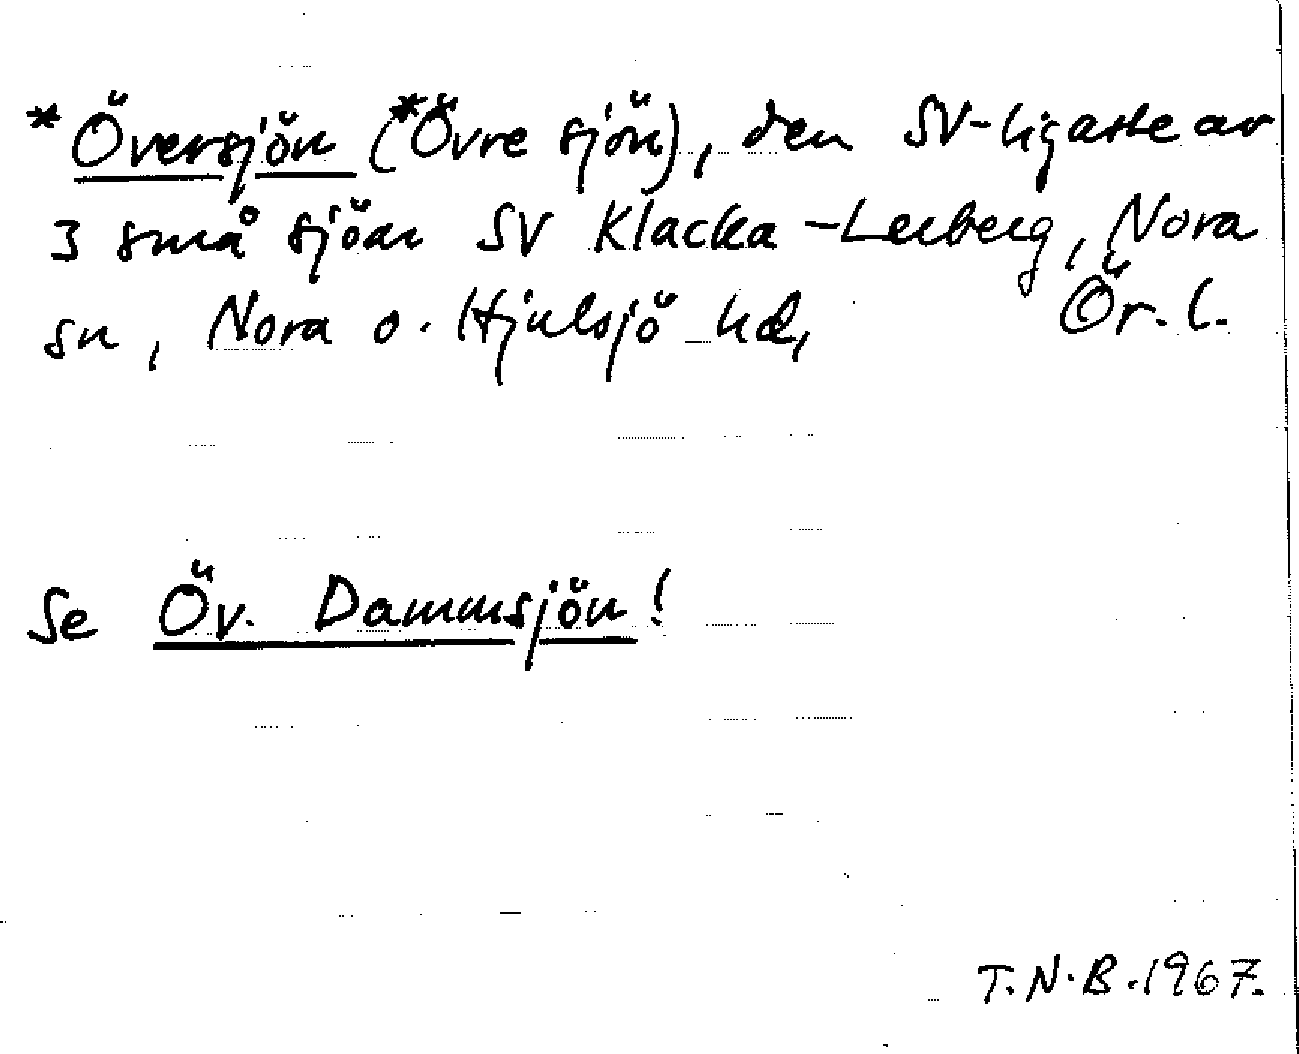 *Översjön (*Övre sjön), den SV-ligaste av
3 små sjöar SV Klacka-Lerberg, Nora
sn, Nora o. Hjulsjö hd, Ör. l.
Se Öv. Dammsjön!
T.N.B. 1967.